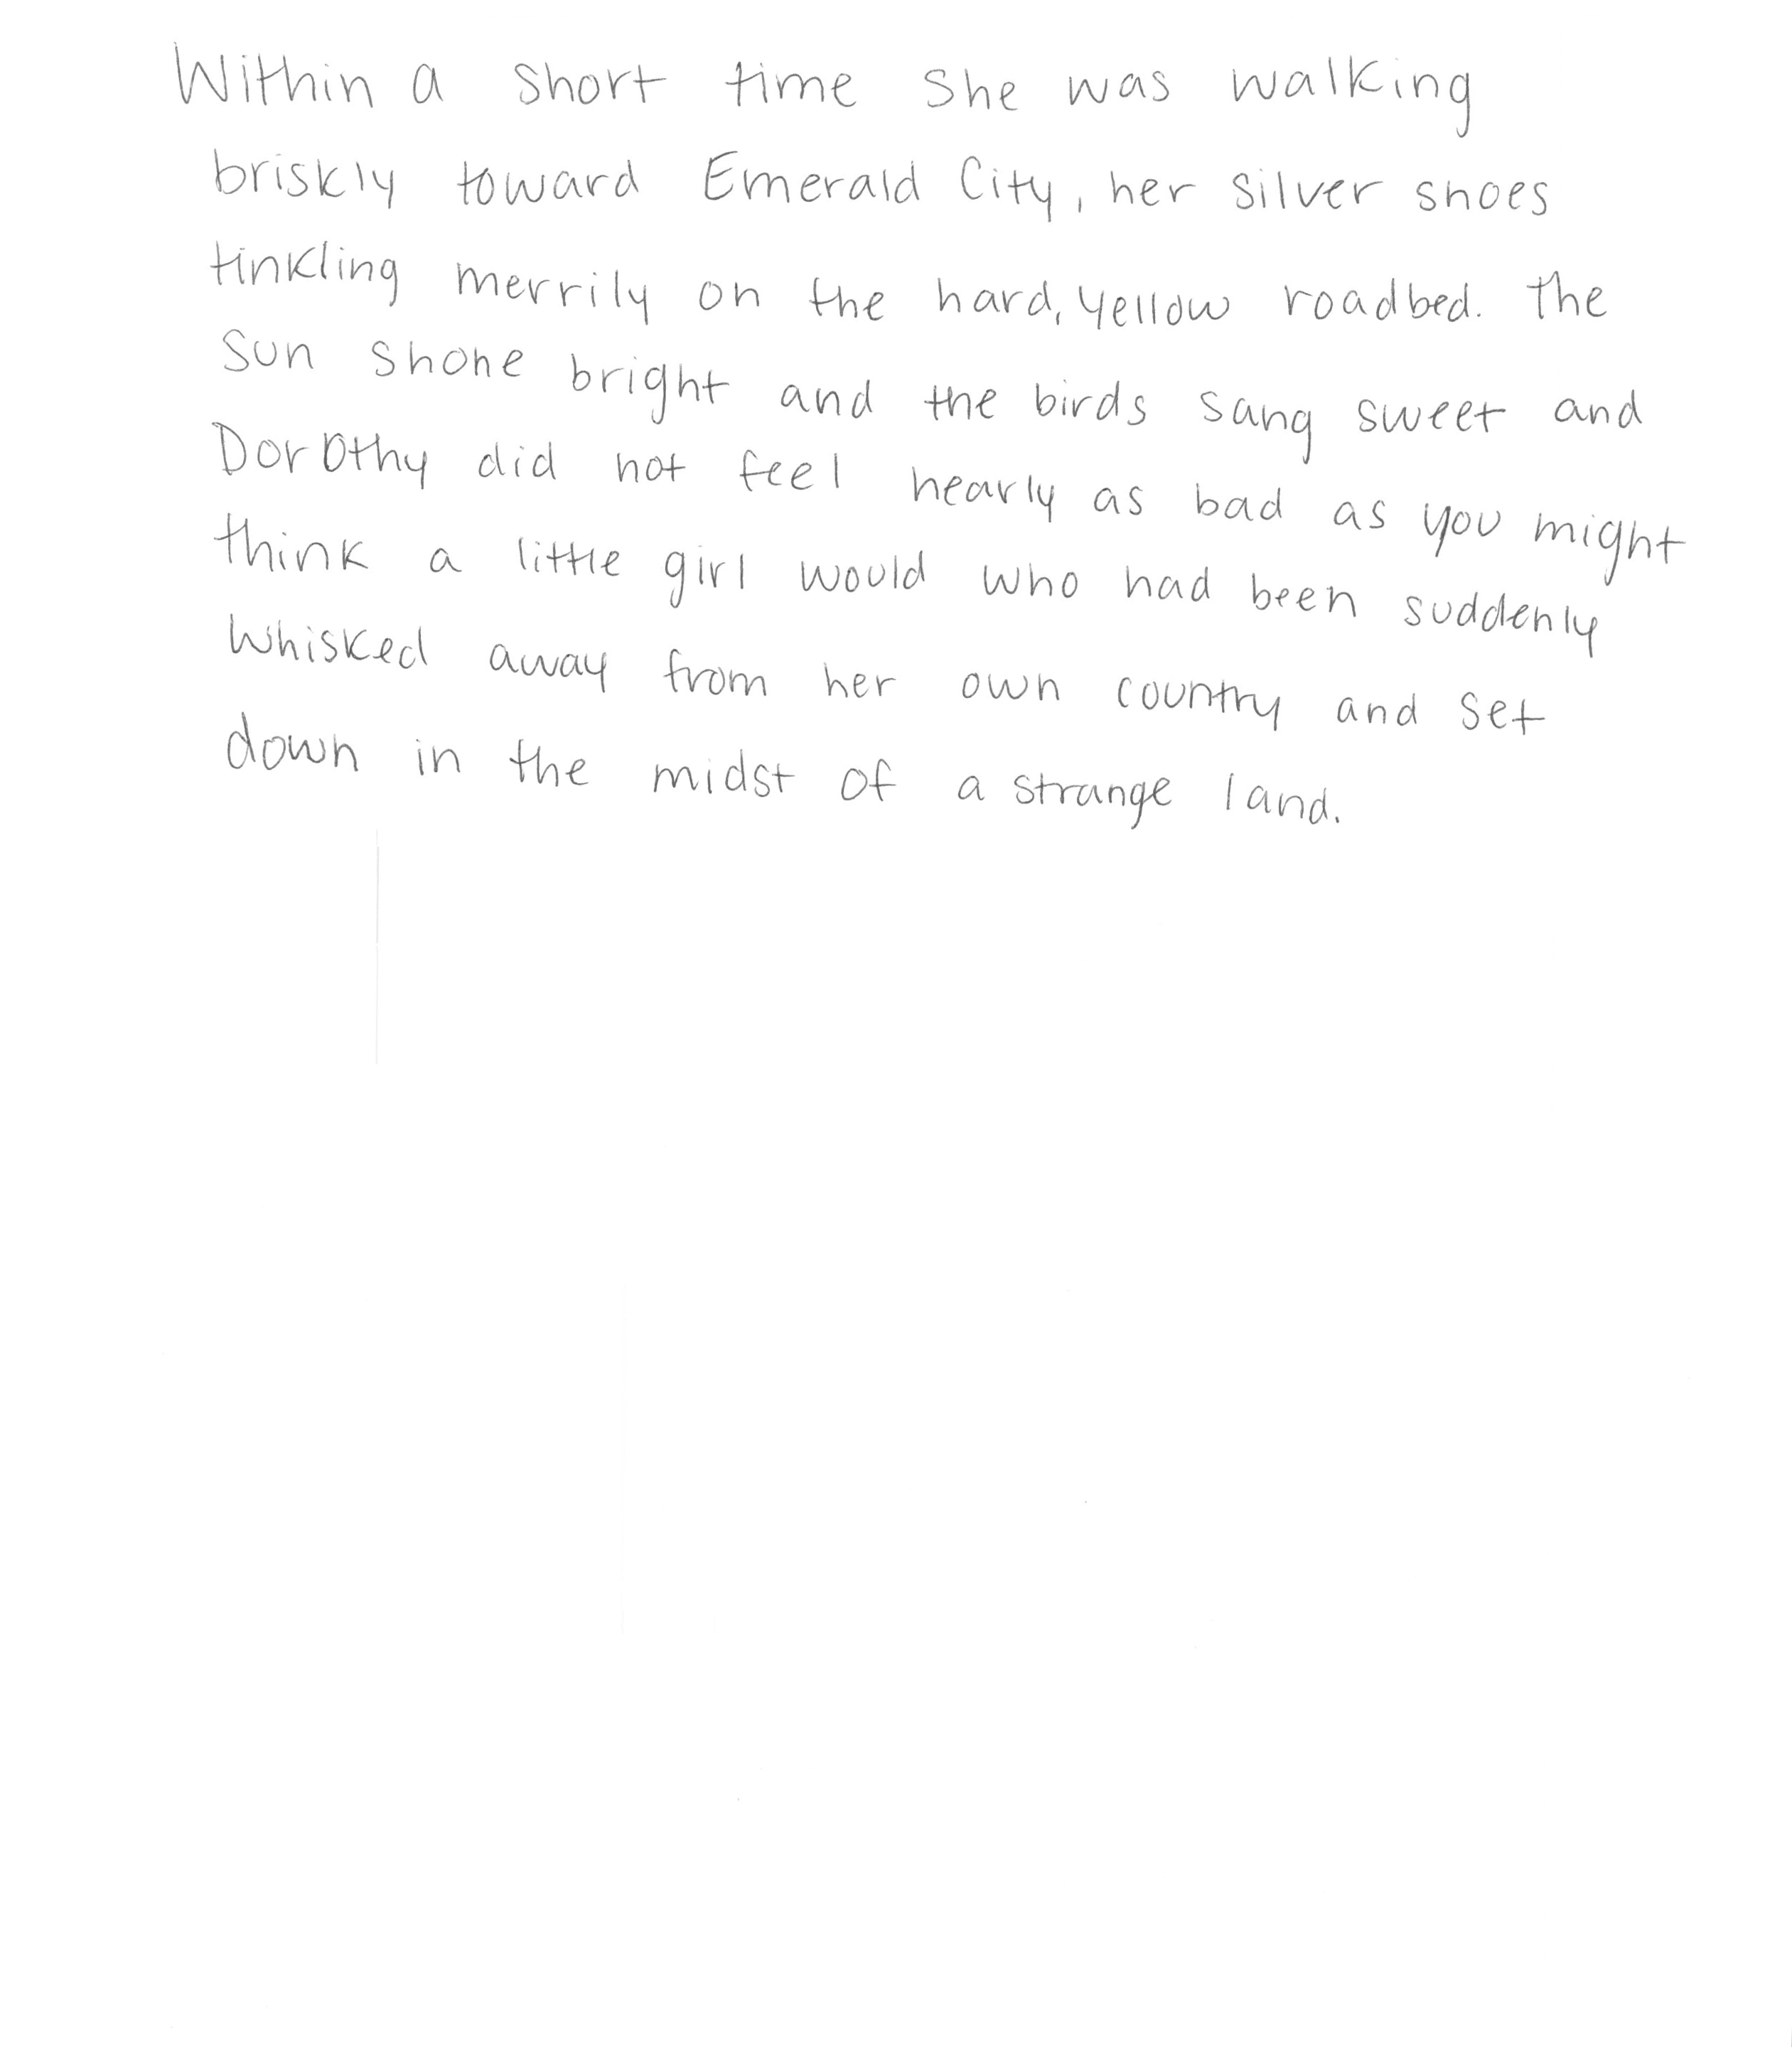 Within a short time she was walking
briskly toward Emerald City, her silver shoes
tinkling merrily on the hard, yellow roadbed. The
sun shone bright and the birds sang sweet and
Dorothy did not feel nearly as bad as you might
think a little girl would who had been suddenly
whisked away from her own country and set
down in the midst of a strange land.